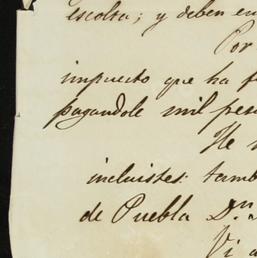 escolta; y deben en
Por
impuesto que ha f
pagandole mil pes
He
incluistes: tamb
de Puebla Dn.
Vi a